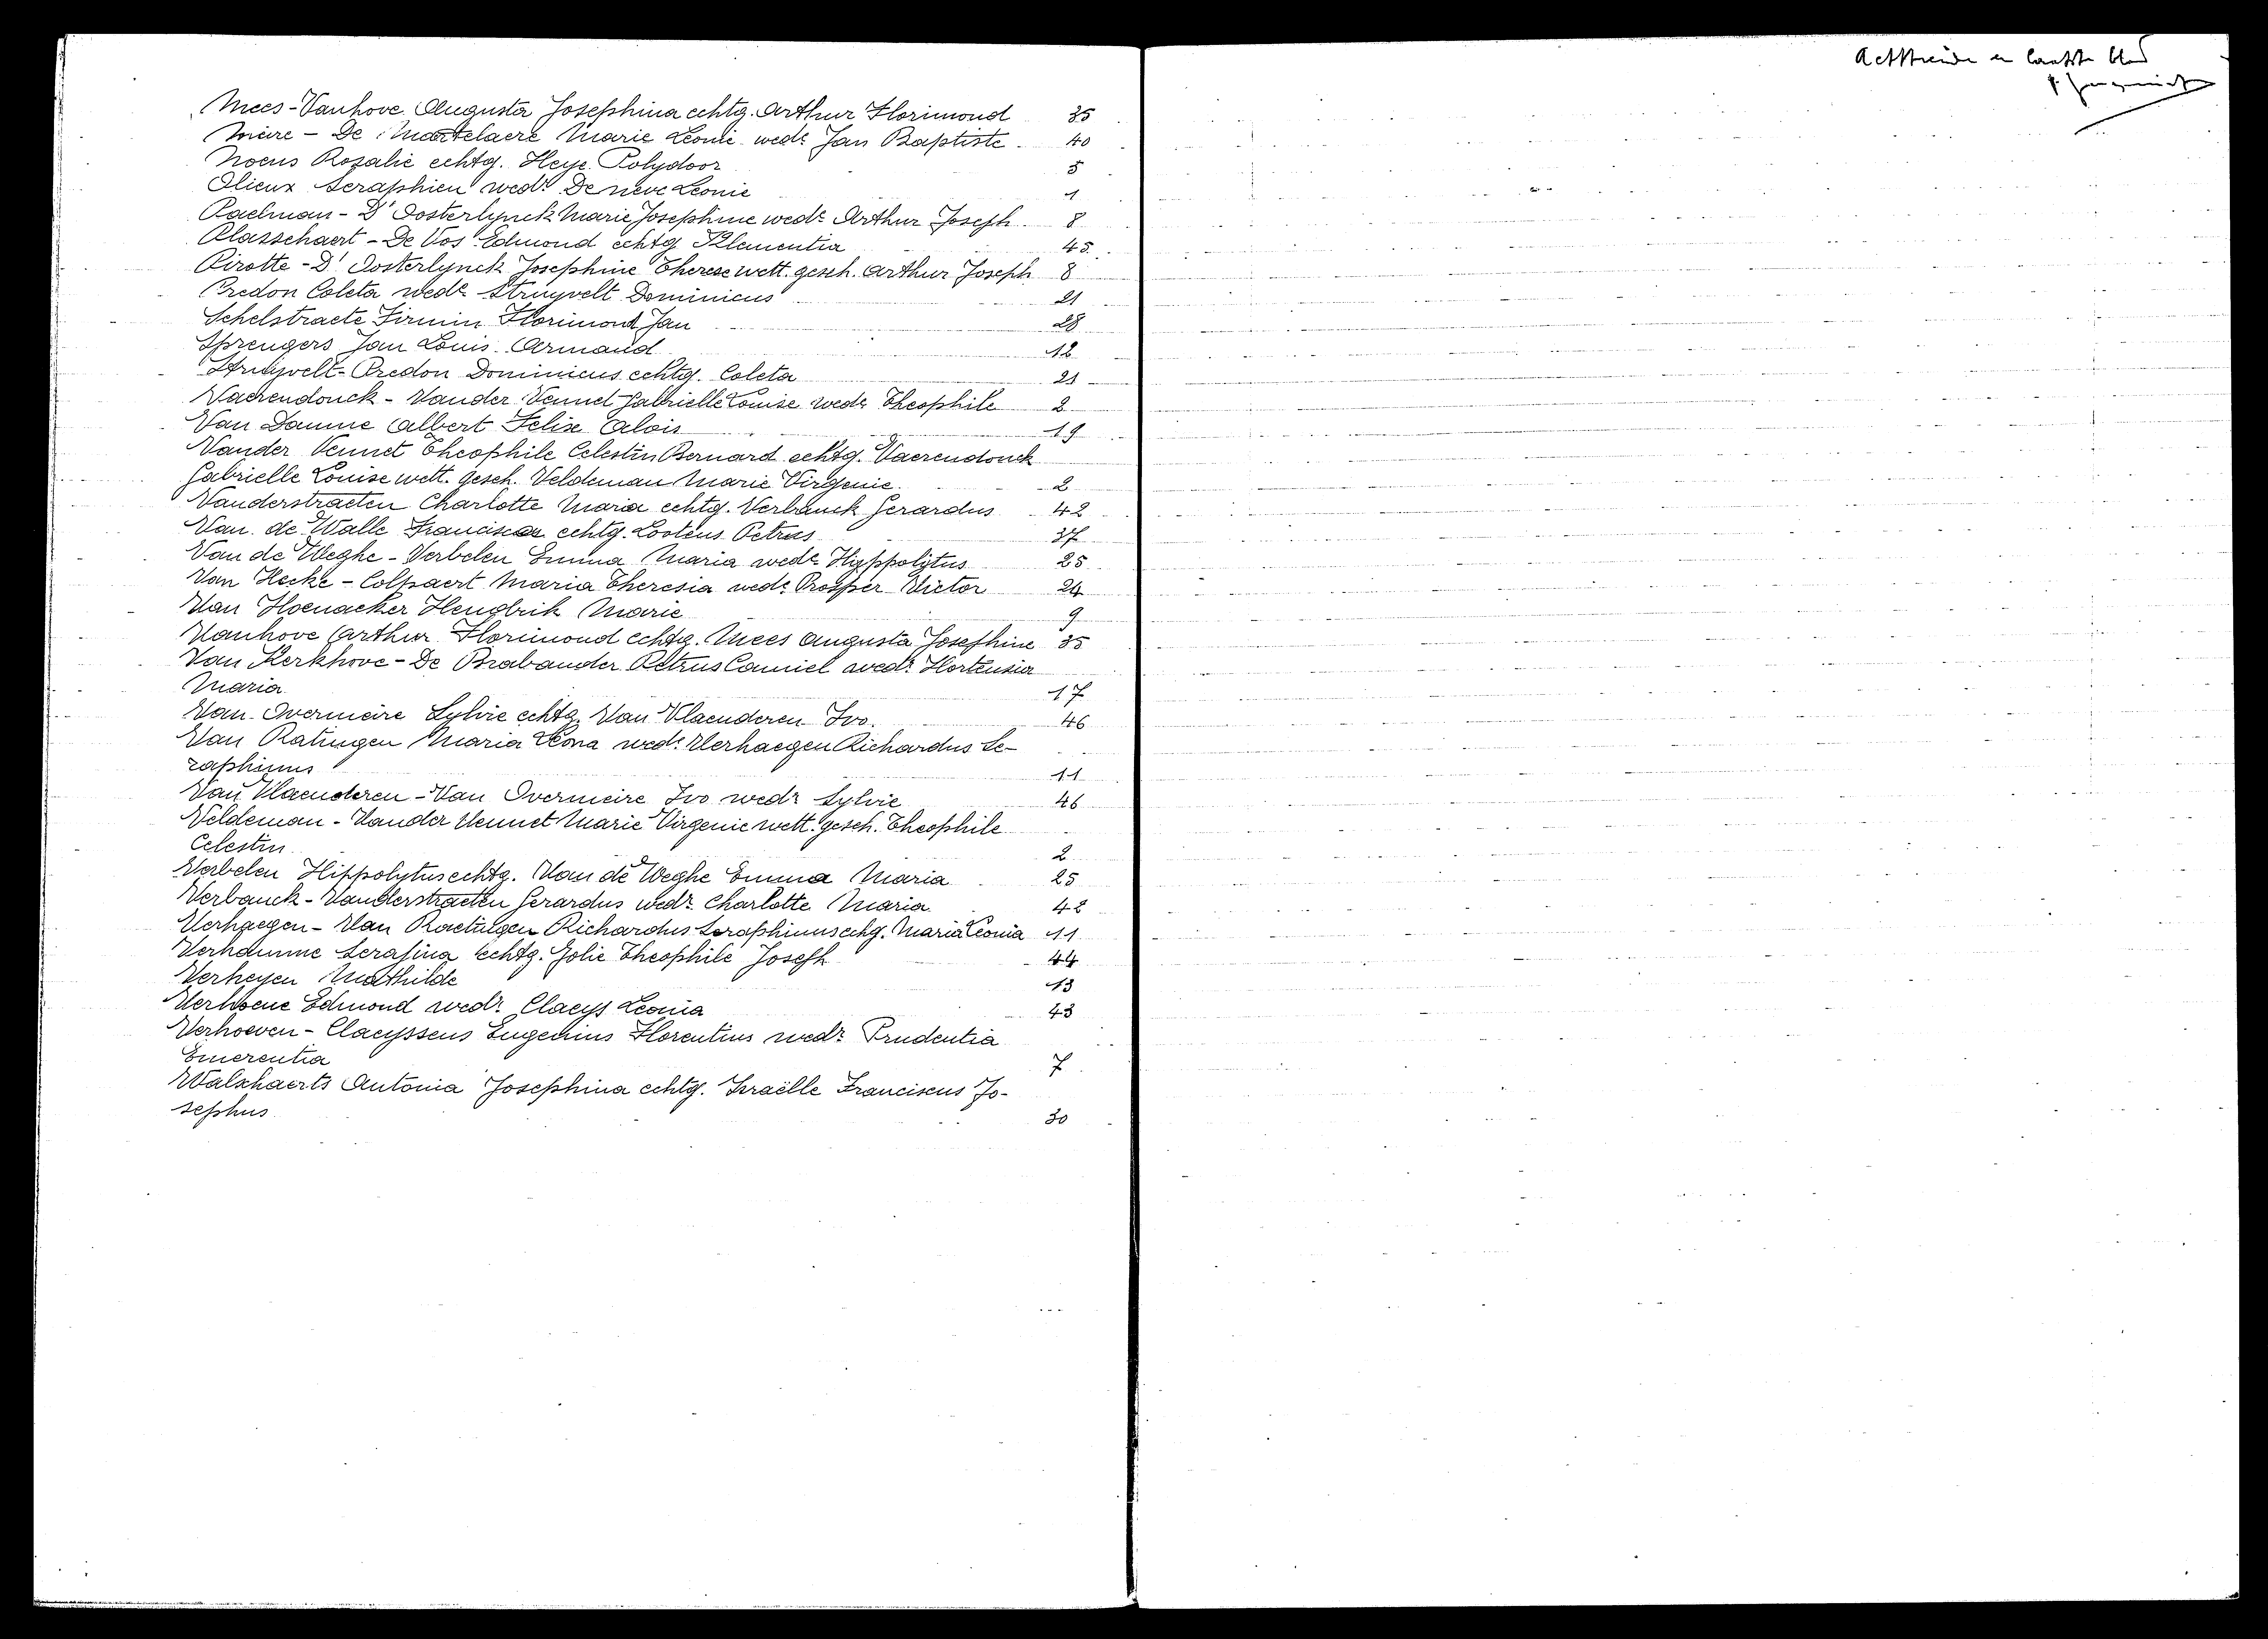 Mees-Vanhove Augusta Josephina echtg. Arthur Florimond 35
Mière - De Martelaere Marie Leonie wede Jan Baptiste 40
Noens Rozalie echtg. Heye Polydoor 5
Olieux Seraphien wedr De neve Leonie 1
Paelman - D'Oosterlynck Marie Josephine wede Arthur Joseph 8
Plasschaert - De Vos Edmond echtg Klementia 45
Pirotte - D'Oosterlynck Josephine Therese wett. gesch. Arthur Joseph 8
Predon Coleta wede Struyvelt Dominicus 21
Schelstraete Firmin Florimond Jan 28
Sprengers Jan Louis Armand 12
Struyvelt-Predon Dominicus echtg. Coleta 21
Vaerendonck - Vander Vennet Gabrielle Louise wede Theophile 2
Van Damme Albert Felix Alois 19
Vander Vennet Theophile Celestin Bernard echtg. Vaerendonck
Gabrielle Louise wett. gesch. Veldeman Marie Virgenie. 2
Vanderstraeten Charlotte Maria echtg. Verbauck Gerardus 42
Van de Walle Francisca echtg. Lootens Petrus 37
Van de Weghe - Verbelen Emma Maria wede Hyppolytus 25
Van Hecke - Colpaert Maria Theresia wede Prosper Victor 24
Van Hoenacker Hendrik Marie 9
Vanhove Arthur Florimond echtg. Mees Augusta Josephine 35
Van Kerkhove - De Brabander Petrus Camiel wedr Hortensia
Maria 17
Van Overmeire Sylvie echtg. Van Vlaenderen Ivo. 46
Van Ratingen Maria Leona wede Verhaegen Richardus Se-
raphinus 11
Van Vlaenderen - Van Overmeire Ivo wedr Sylvie 46
Veldeman - Vander Vennet Marie Virgenie wett. gesch. Theophile
Celestin 2
Verbelen Hippolytus echtg. Van de Weghe Emma Maria 25
Verbauck - Vanderstraeten Gerardus wedr. Charlotte Maria 42
Verhaegen - Van Raetingen Richardus Seraphinus echg. Maria Leonia 11
Verhamme Serafina echtg. Jolie Theophile Joseph 44
Verheyen Mathilde 13
Verhoene Edmond wedr. Claeys Leonia 43
Verhoeven - Claeyssens Eugenius Florentius wedr. Prudentia
Emerentia 7
Walschaerts Antonia Josephina echtg. Israëlle Franciscus Jo-
sephus 30
Achttiende en laatste blad